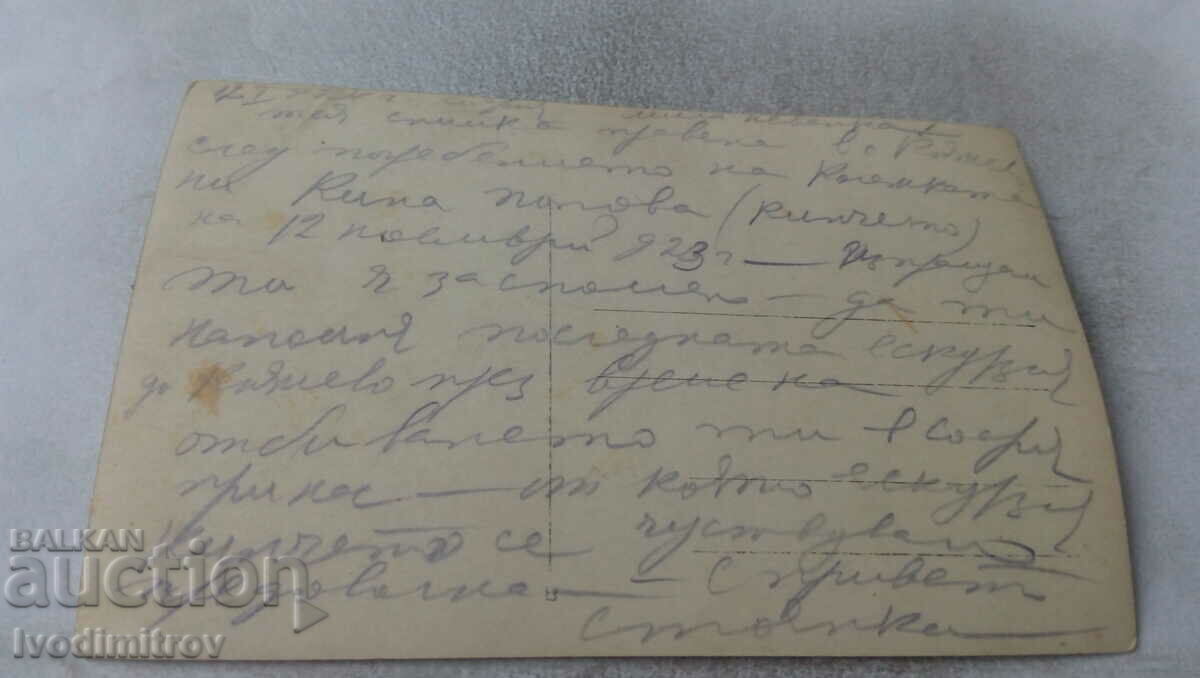 тая снимка правена в с. Княжево
след погребението на
ни Кина Попова (Кинчето)
на 12 ноември 923 г — Изпращам
ти я за спомен — да ти
напомня последната екскурзия
до Княжево през време на
отбиването ти в София
при нас — от която екскурзия
Кинчето се чуствуваше
— С привет
Стоянка
BALKAN
auction
Ivodimitrov